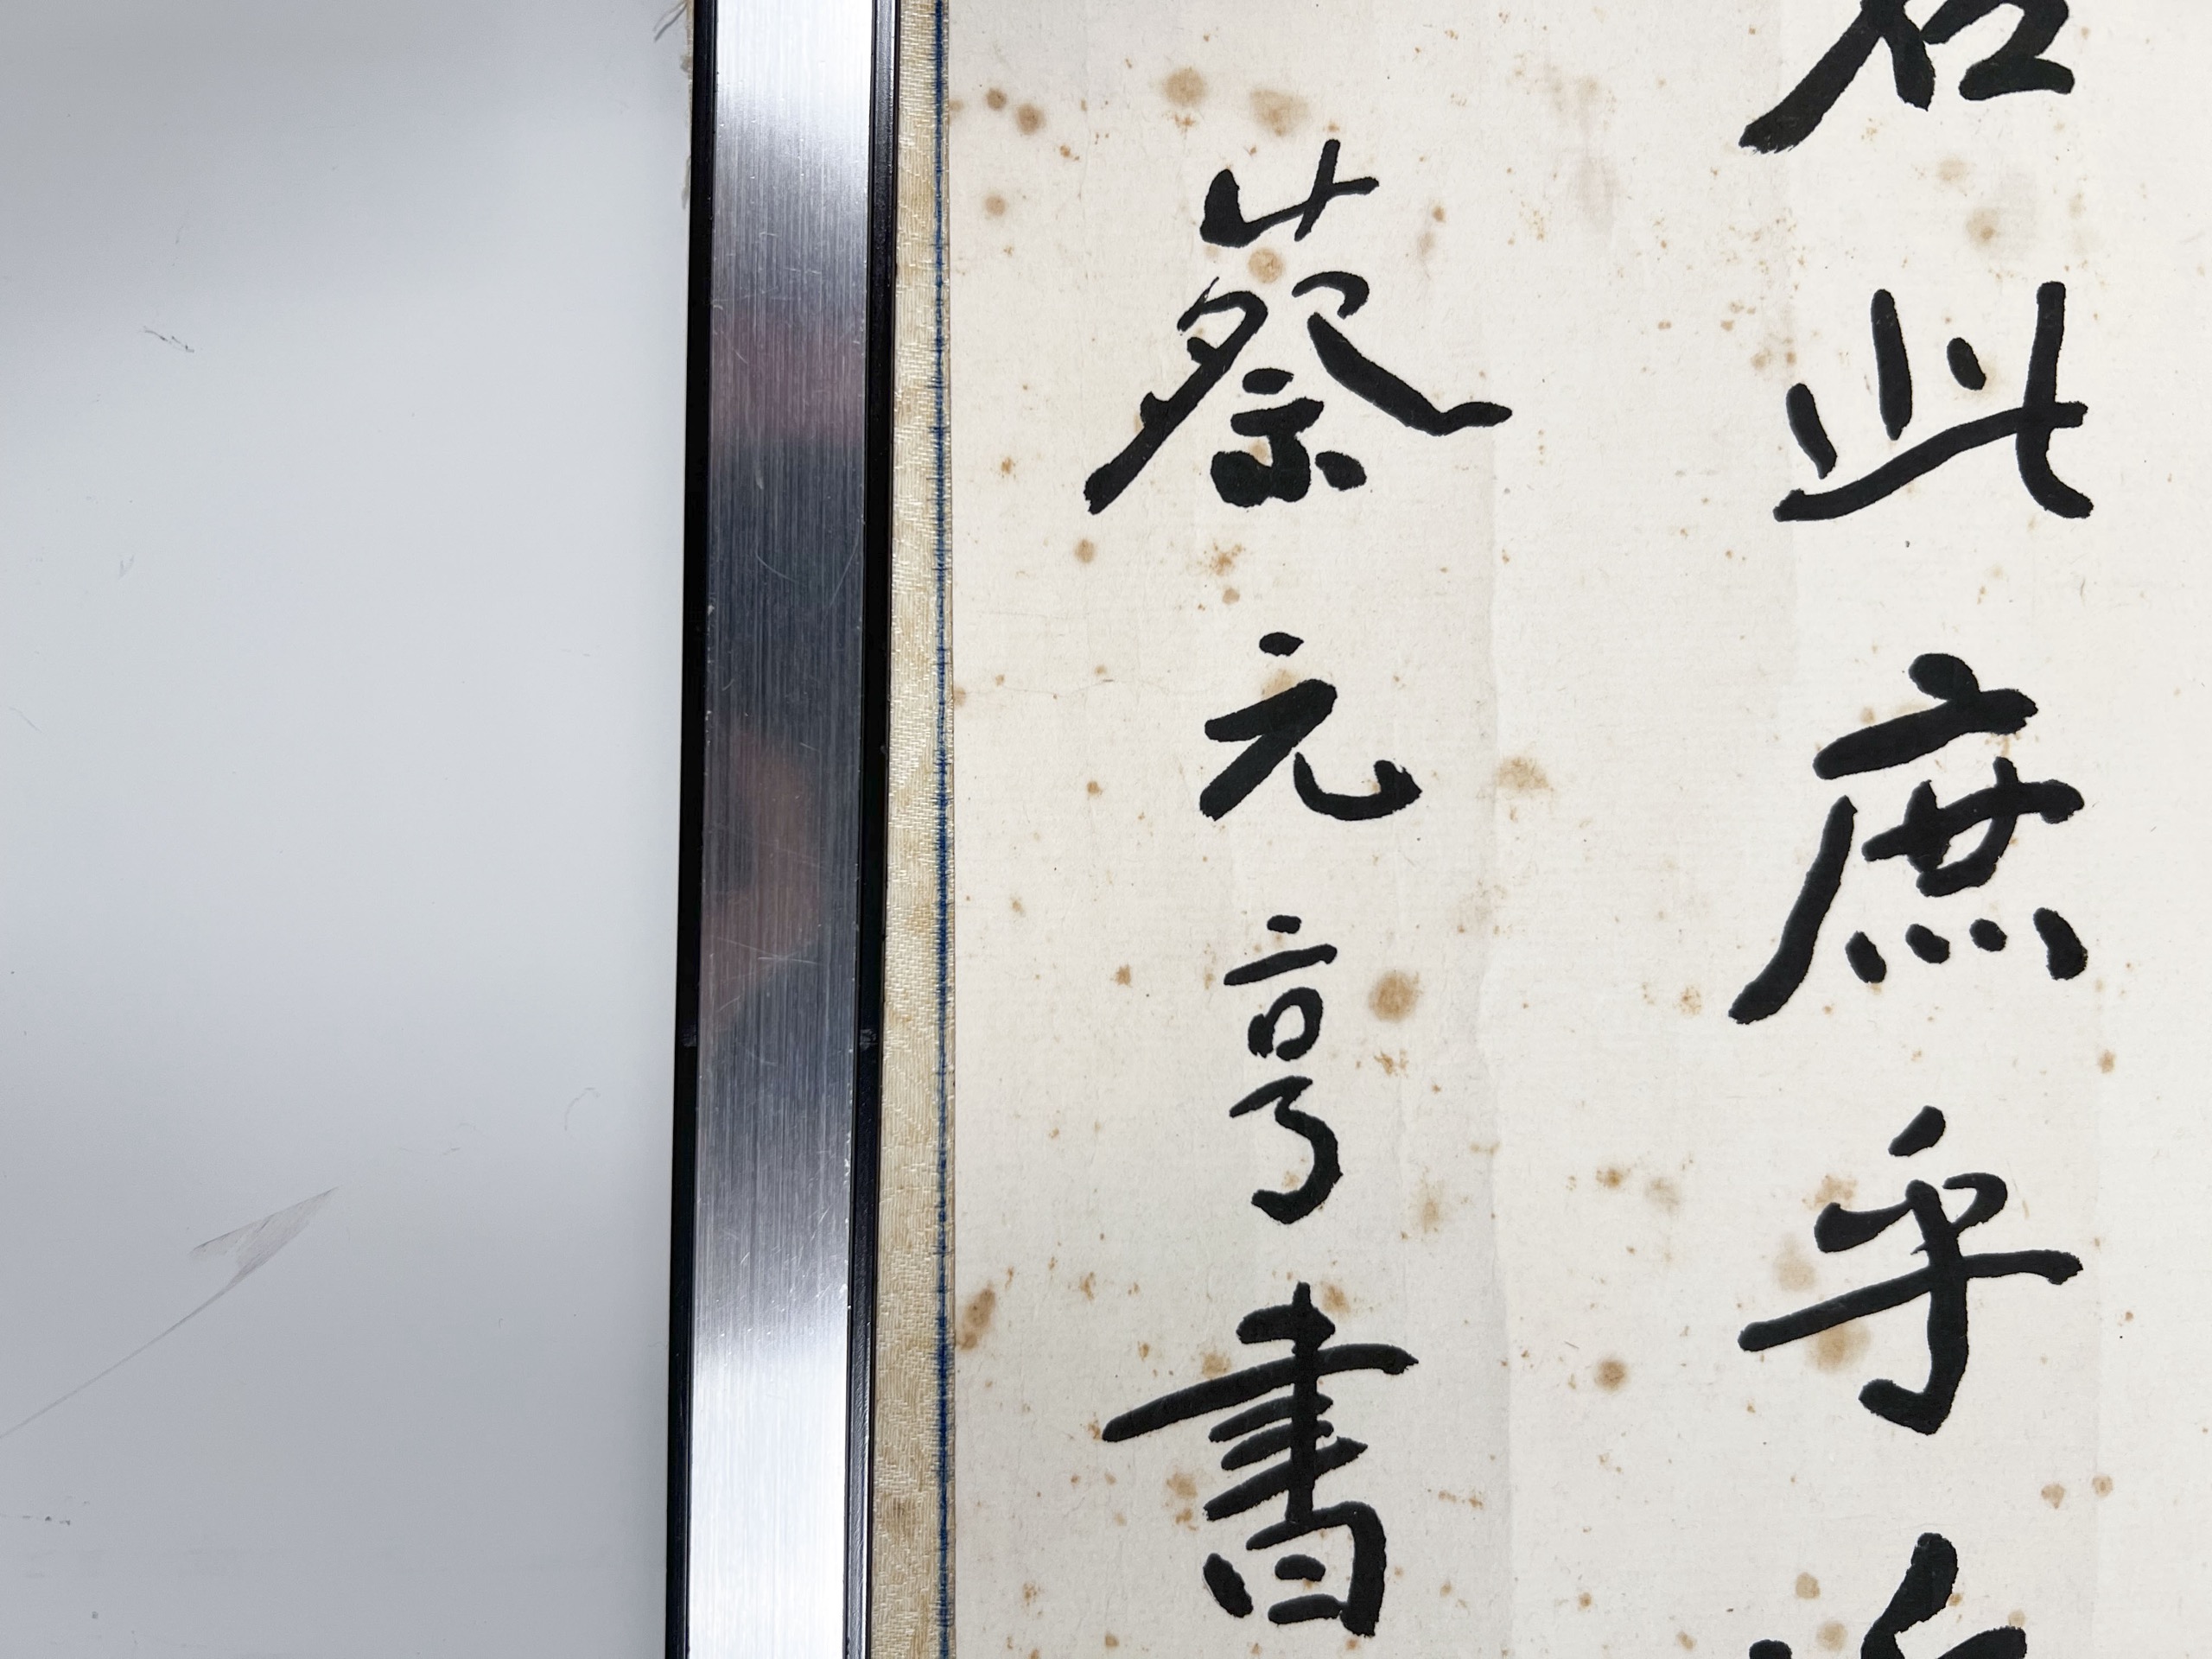 此庶乎
蔡元亨書